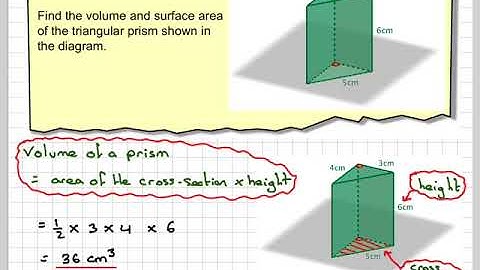 Find the volume and surface area
of the triangular prism shown in
the diagram.
6cm
5cm
Volume of a prism
= area of the cross-section x height
= 1/2 x 3 x 4 x 6
= 36 cm³
4cm
3cm
height
6cm
5cm
cross